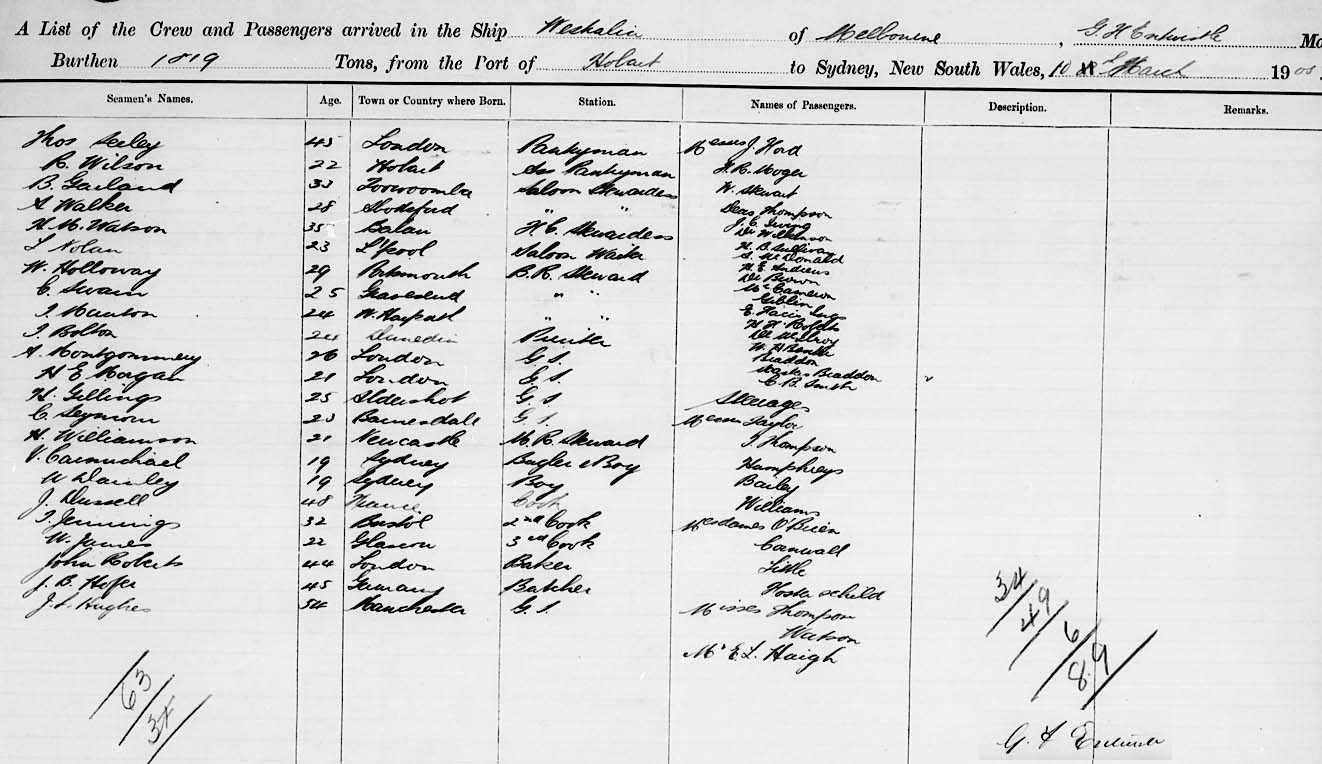 A List of the Crew and Passengers arrived in the Ship Westralia of Melbourne, G. H. Entwistle
Burthen 1819 Tons, from the Port of Hobart to Sydney, New South Wales, 10 March 1900
Seamen's Names. Age. Town or Country where Born. Station. Names of Passengers. Description. Remarks.
Thos Seeley 45 London Pantryman Messrs J. Hord
R. Wilson 22 Hobart Ass Pantryman H. R. Moger
B. Garland 33 Toowoomba Saloon Stewardess W. Stewart
S Walker 28 " Deas Thompson
J. C. Irving
H. M. Watson 35 Balan F. C. Stewardess Dr Wilkinson
L Nolan 23 L'pool Saloon Waiter H. B. Sullivan
S. McDonald
W. Holloway 29 Portsmouth B. R. Steward H. E. Andrews
De Brown
C. Swain 25 Gravesend " " Cameron
Giblin
T. Maunton 24 " " E.
T. Bolton 24 Dunedin Printer
A. Montgommery 26 London G. S.
Braddon
H E Morgan 21 London G. S. Master Braddon
C. B. Smith
H. Gillings 25 Aldershot G. S Steerage
C. Seymour 23 Barnesdale G. S. Messrs Taylor
H. Williamson 21 Newcastle M. R. Steward T. Thompson
V. Carmichael 19 Sydney Bugler & Boy Humphreys
W Danley 19 Sydney Boy Bailey
J. Dussell 48 France Cook Williams
T. Jennings 32 Bristol 2nd Cook Mesdames O'Brien
W. James 22 Glasgow 3rd Cook Carnwall
John Roberts 44 London Baker Little
J. B. Hofer 45 Germany Butcher
J. S. Hughes 54 Manchester G. S. Misses Thompson
Watson
Mr E. L. Haigh
34/
49/
6/
89/
63/
34/
G. H Entwistle